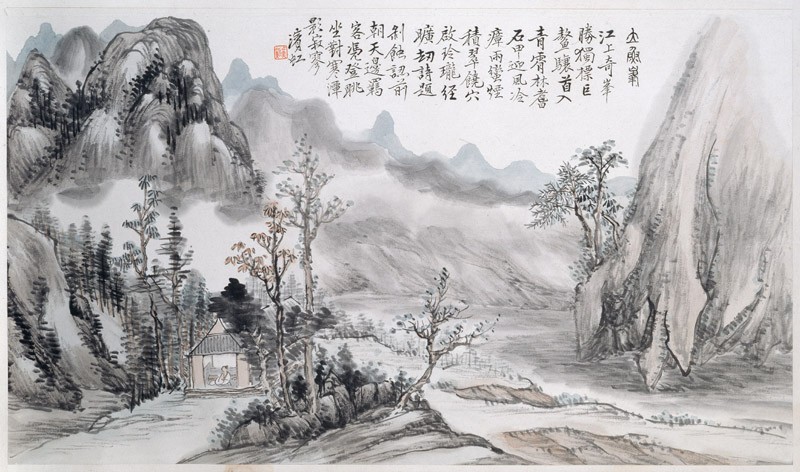 立魚峯
江上奇峯
勝獨標巨
鰲驤首入
青霄林鬐
石甲迎風冷
瘴雨蠻煙
積翠饒穴
啟玲瓏經
曠劫詩題
剝蝕認前
朝天邊羈
客憑登眺
坐對寒潭
影寂寥
濱虹